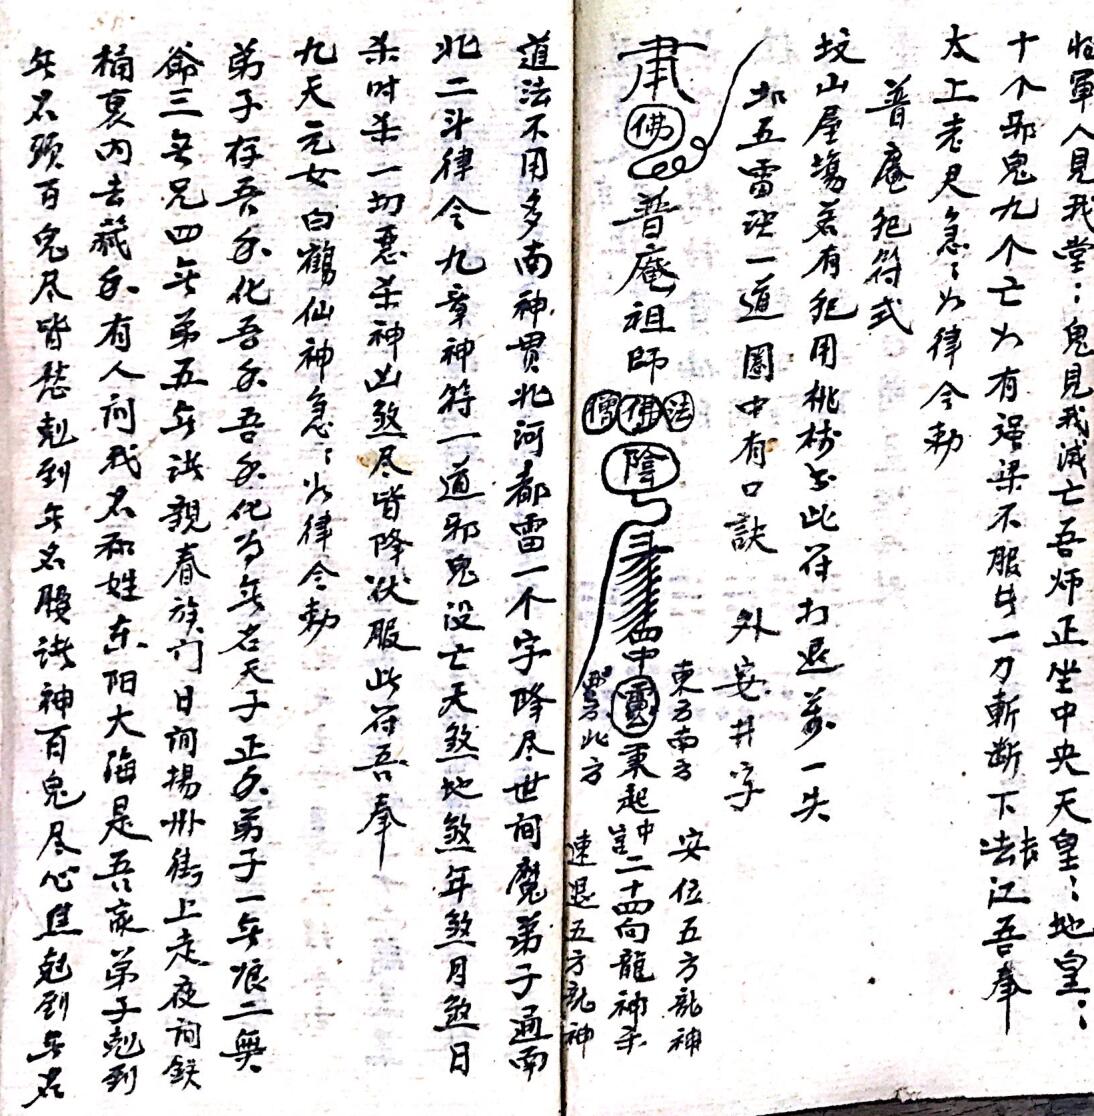 将軍人見我堂:鬼見我滅亡吾师正坐中央天皇:地皇:
十个邪鬼九个亡为有强梁不服者一刀斬断下去長江吾奉
太上老君急:如律令勅
普庵犯符式
坟山屋塲若有犯用桃树书此符打退萬一失
加五雷诀一道圈中有口訣 外安井字
肃佛普庵祖師
僧佛法
陰
四中靈
東方南方
西方北方
東起中宫二十四向龍神杀
安位五方龍神
速退五方龍神
道法不用多南神贯北河都雷一个字降尽世间魔弟子通南
北二斗律令九章神符一道邪鬼没亡天煞地煞年煞月煞日
杀时杀一切悪杀神凶煞尽皆降伏服此符吾奉
九天元女白鶴仙神急:如律令勅
弟子存吾身化吾身吾身化为無名天子正身弟子一無娘二無
爺三無兄四無弟五無諸親春族门日间揚州街上走夜间鉄
桶裏内去藏身有人问我名和姓东阳大海是吾家弟子剋到
無名頭百鬼尽皆愁剋到無名股諸神百鬼尽心焦剋到無名